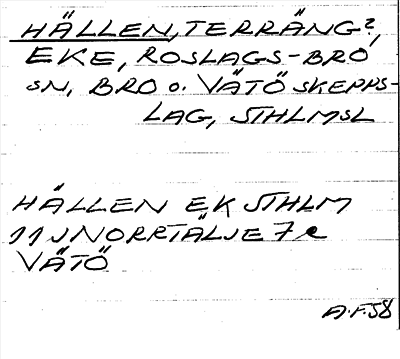 HÄLLEN, TERRÄNG?,
EKE, ROSLAGS-BRO
SN, BRO o. VÄTÖ SKEPPS-
LAG, STHLMSL
HÄLLEN EK STHLM
11 J NORRTÄLJE 7 e
VÄTÖ
A.F. 58